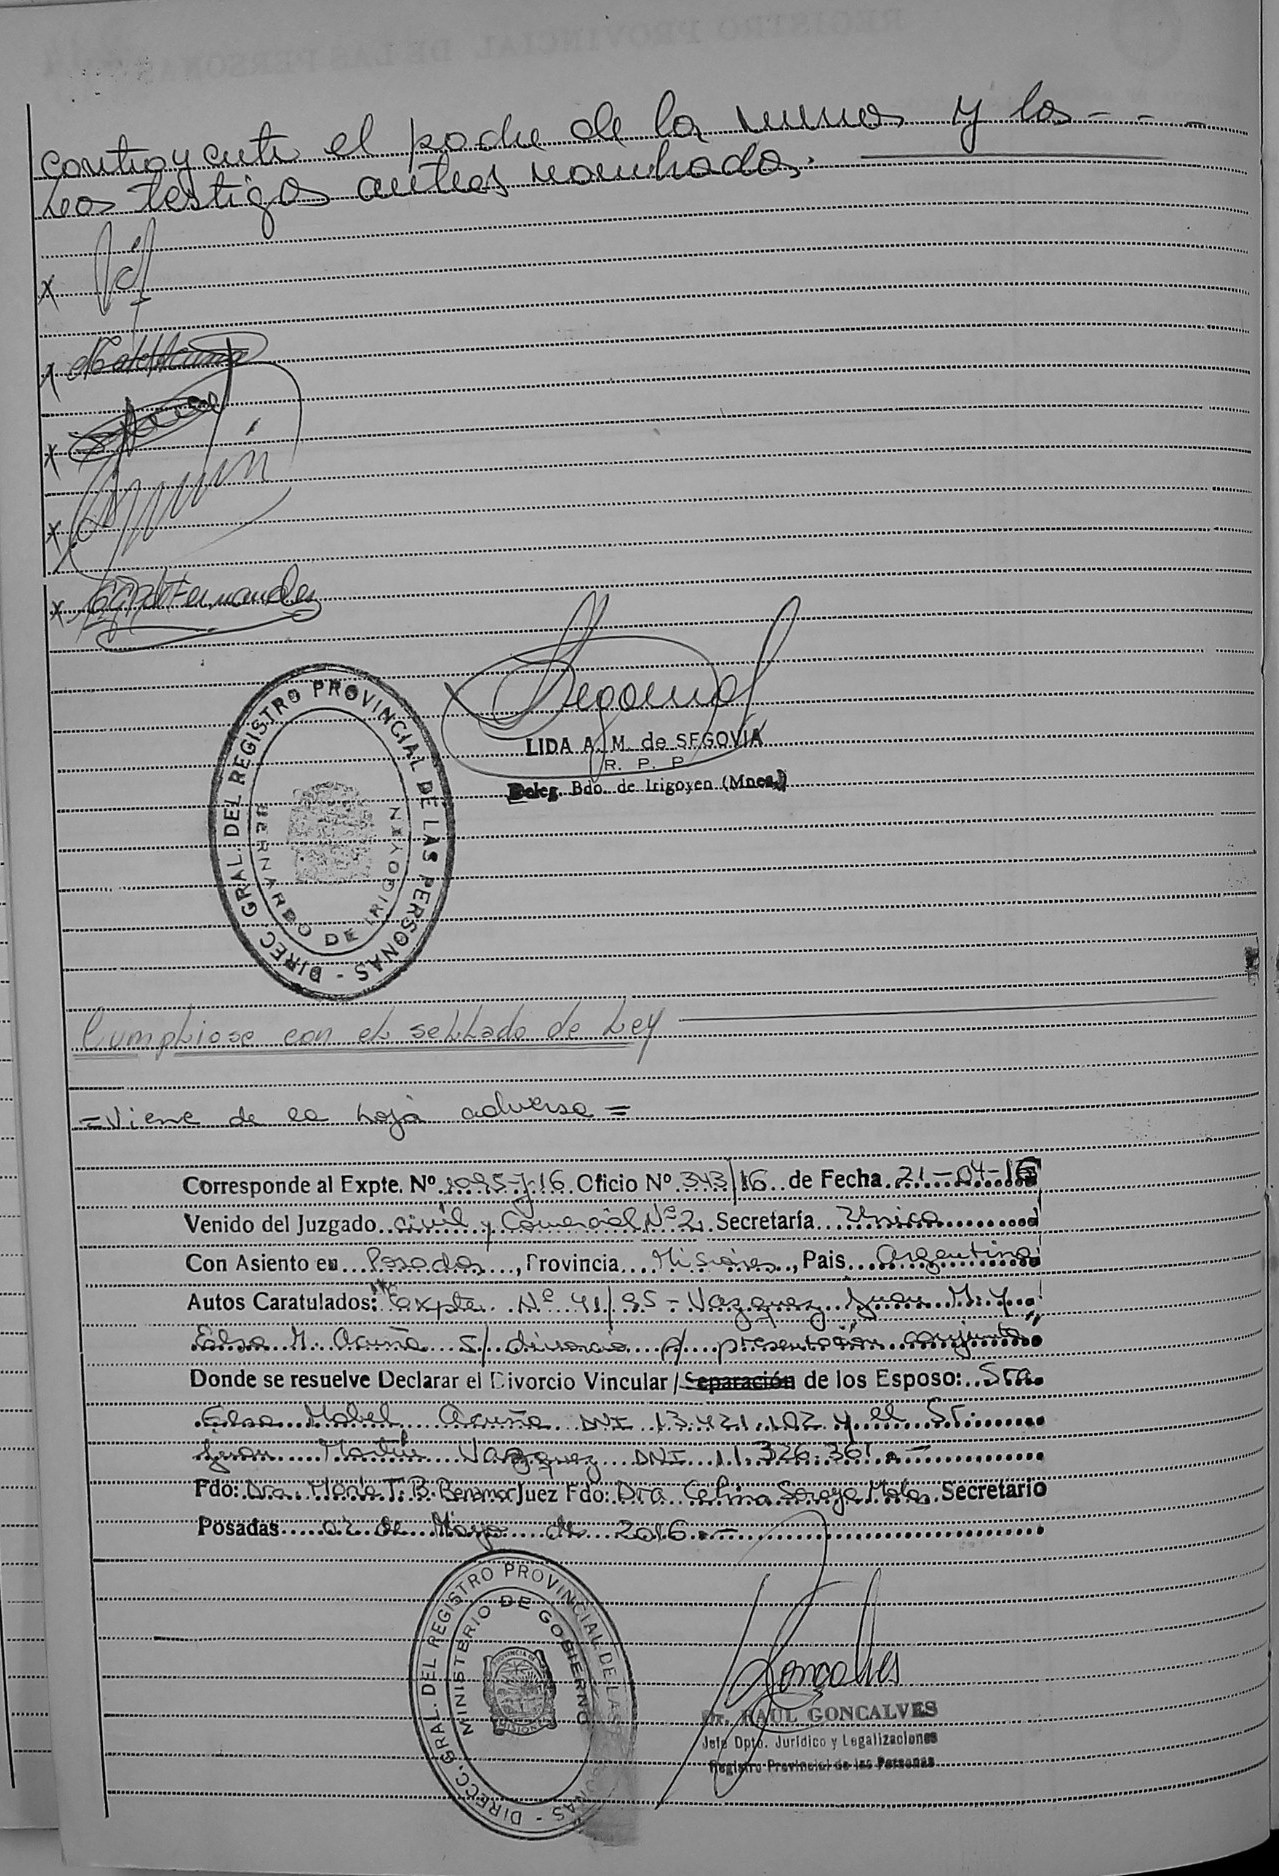 contrayente el padre de la menor y los - - -
Los testigos antes nombrados.
x
x
x
x
x Fernandez
Segovia
LIDA A. M. de SEGOVIA
R. P. P.
Deleg. Bdo. de Irigoyen (Mnes.)
DIREC GRAL. DEL REGISTRO PROVINCIAL DE LAS PERSONAS -
BERNARDO DE IRIGOYEN
Cumpliose con el sellado de Ley
=Viene de la hoja adversa=
Corresponde al Expte. Nº 1095-J-16 Oficio Nº 343/16 de Fecha 21-04-16
Venido del Juzgado civil y Comercial Nº 2, Secretaría Unica
Con Asiento en Posadas, Provincia Misiones, Pais Argentina
Autos Caratulados: "Expte. Nº 41/95 - Vazquez Juan M. y
Elsa M. Acuña s/ divorcio p/ presentación conjunta"
Donde se resuelve Declarar el Divorcio Vincular / Separación de los Esposo: Sra.
Elsa Mabel Acuña DNI 13.421.102 y el Sr.
Juan Martín Vazquez DNI 11.326.361.-
Fdo: Dra. T. B. Benamor Juez Fdo: Dra Celina Soraya Secretario
Posadas 02 de Mayo de 2016.-
DIRECC. GRAL. DEL REGISTRO PROVINCIAL DE LAS PERSONAS -
MINISTERIO DE GOBIERNO
PROVINCIA DE MISIONES
Goncalves
Dr. RAUL GONCALVES
Jefe Dpto. Jurídico y Legalizaciones
Registro Provincial de las Personas